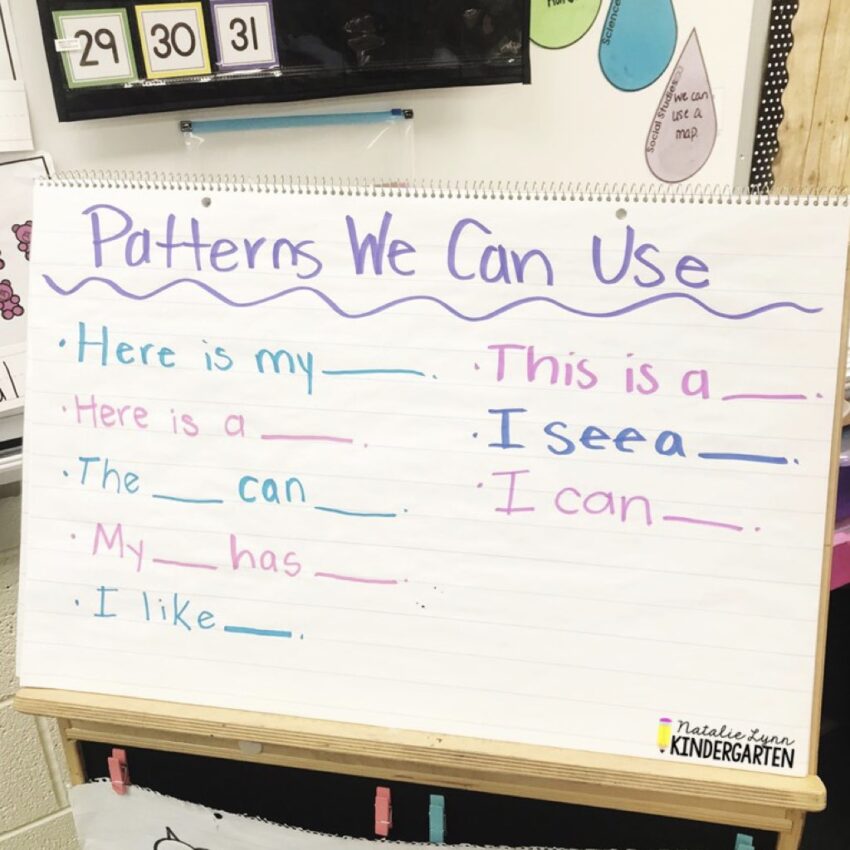 29 30 31
Science
Social Studies
we can
use a
map.
Patterns We Can Use
· Here is my ____.
· Here is a ____.
· The ____ can ____.
· My ____ has ____.
· I like ____.
· This is a ____.
· I see a ____.
· I can ____.
Natalie Lynn
KINDERGARTEN